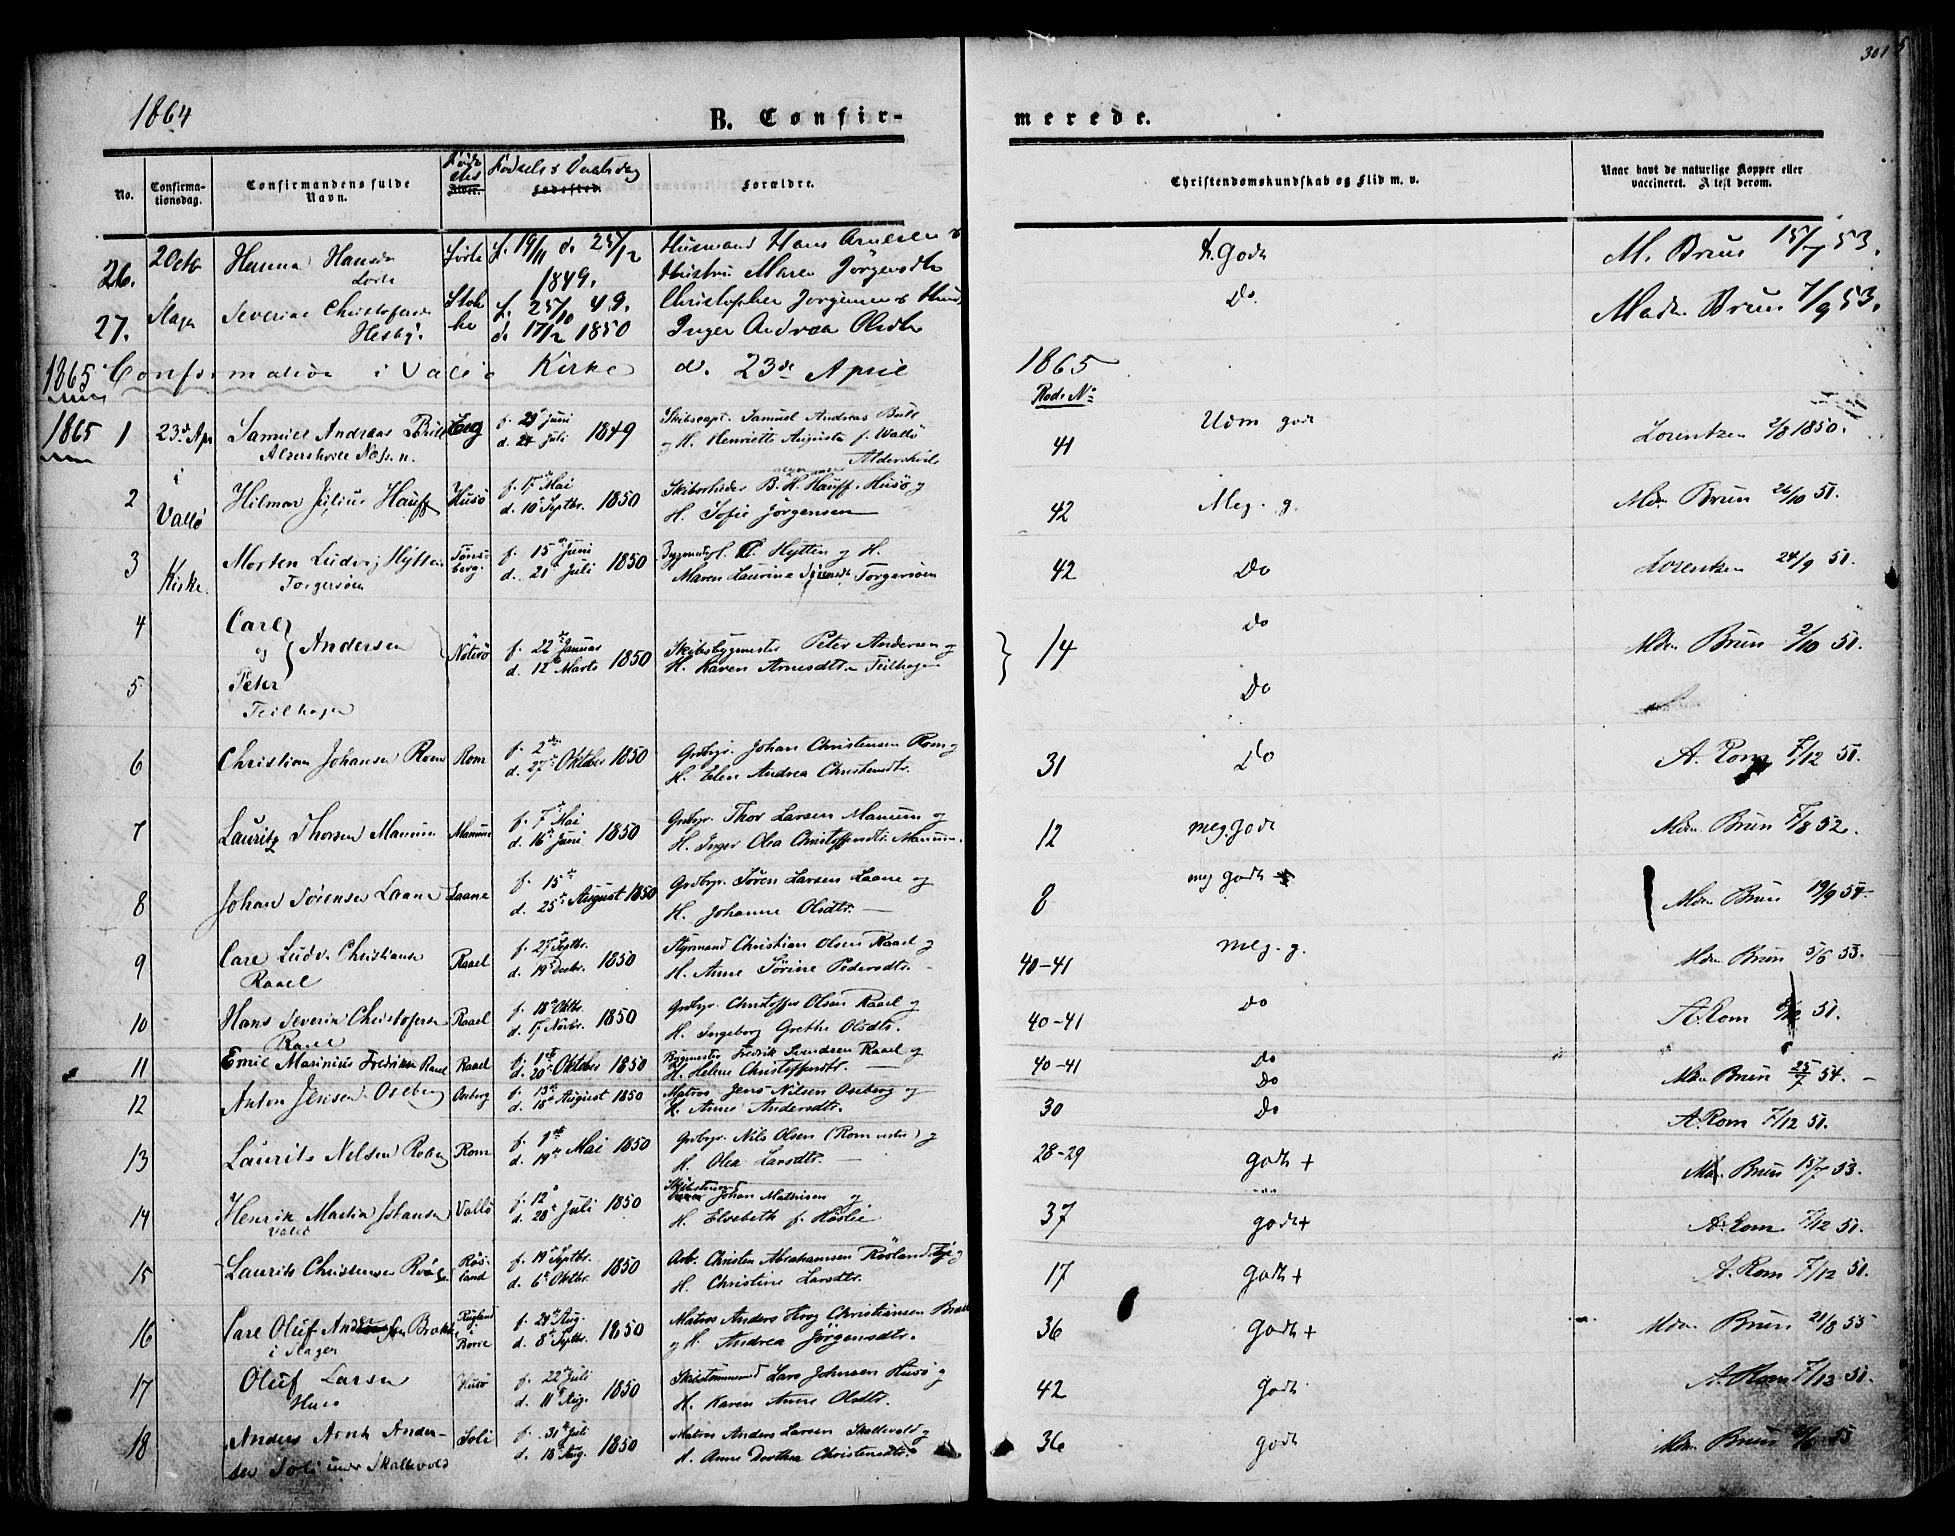 301
1864
B. Confir-
merede.
No.
Confirma-
tionsdag.
Confirmandens fulde
Navn.
Alder.
Fødsels & Daabsdag
Fødested.
Forældre.
Christendomskundskab og Flid m. v.
Naar havt de naturlige Kopper eller
vaccineret. Attest derom.
26. 2 Octb Hanna Hansd. f. 19/11 d. 25/12 1849. Husmand Hans Arnesen &
Hustru Maren Jörgensdtr Godt M. Brun 15/7 53.
27. Slagn Severine Christofersd. f. 25/10 49. Christopher Jorgensen & Hust.
d. 17/2 1850 Inger Andrea Olsdtr Do. Madm Brun 7/9 53.
1865 Confirmation i Valö Kirke d. 23de April 1865
Rode No
1865 1 23de Apr Samuel Andreas Bull f. 29 Juni
d. 24 Juli 1849 Skibscapt. Samuel Andreas Bull
og H. Henriette Augusta f. Wallö 41 Udm godt Lorentzen 2/8 1850.
2 i Vallö Hilmar Julius Hauff Husö f. 17 Mai
d. 10 Septbr. 1850 B. H. Hauff. Husö og
H. Sofie Jörgensen 42 Meg. g. Mdm Brun 26/10 51.
3 Kirke. Morten Ludvig Hytten
Torgersön Töns-
berg. f. 15 Juni
d. 21 Juli 1850 Hytten og H.
Maren Laurine Torgersön 42 Do Lorentzen 24/9 51.
4 Carl
og Andersen Nöterö f. 22 Januar
d. 12 Marts 1850 Skibsbygmester Peter Andersen og
H. Karen Arnesdtr. Teilhagen 14 Do Mdm Brun 2/10 51.
5 Peter
Teilhagen Do
6 Christian Johansen Rom Rom f. 2den
d. 27 Oktober 1850 Grdbgr. Johan Christensen Rom og
H. Elen Andrea Christensdtr. 31 Do A. Rom 7/12 51.
7 Lauritz Thorsen Manum Manum f. 7 Mai
d. 16 Juni 1850 Grdbgr. Thor Larsen Manum og
H. Inger Olea Christoffersdtr. Manum. 12 meg. godt Mdm Brun 7/8 52.
8 Johan Sörensen Laane Laane f. 15
d. 25 August 1850 Grdbgr. Sören Larsen Laane og
H. Johanne Olsdtr. 8 meg godt Mdm Brun 19/9 54
9 Carl Ludv. Christiansen
Raael Raael f. 27 Septbr.
d. 19 Decbr. 1850 Styrmand Christian Olsen Raael og
H. Anne Sörine Pedersdtr. 40-41 meg. g. Mdm Brun 5/6 53.
10 Hans Severin Christofersen
Raael Raael f. 18 Oktbr.
d. 17 Novbr. 1850 Grdbgr. Christoffer Olsen Raael og
H. Ingeborg Grethe Olsdtr. 40-41 do A. Rom 51.
11 Emil Marinius Fredriksen Raael Raael f. 1
d. 20 Oktober 1850 Bygmester Fredrik Svendsen Raael og
H. Helene Christoffersdtr. 40-41 Do
Do Mdm Brun 25/7 54.
12 Anton Jensen Oseberg Oseberg f. 13
d. 18 August 1850 Matros Jens Nilsen Oseberg og
H. Anne Andersdtr. 30 Do A. Rom 7/12 51.
13 Laurits Nilsen Rom f. 1
d. 19 Mai 1850 Grdbgr. Nils Olsen (Rom vestre) og
H. Olea Larsdtr. 28-29 godt + Mdm Brun 15/7 53.
14 Henrik Martin Johansen
Valö Vallö f. 12
d. 28 Juli 1850 Johan Mathisen og
H. Elsebeth f. Höslie 37 godt + A. Rom 7/12 51.
15 Laurits Christensen Rös-
land f. 19 Septbr.
d. 6 Oktbr. 1850 Arb. Christen Abrahamsen Rösland og
H. Christine Larsdtr. 17 godt + A. Rom 7/12 51.
16 Carl Oluf
i Slagen Borre f. 21 Aug.
d. 8 Septbr. 1850 Matros Anders Krog Christiansen
og H. Andrea Jörgensdtr. 36 godt + Mdm Brun 21/8 55
17 Oluf Larsen
Husö Husö f. 22 Juli
d. 11 Aug. 1850 Skibstömmermd Lars Johnsen Husö og
H. Karen Anne Olsdtr. 42 godt A. Rom 51.
18 Anders Arnt Ander-
sen Soli under Skallevold Soli f. 31 Juli
d. 18 Aug. 1850 Matros Anders Larsen Skallevold og
H. Anne Dorthea Christensdtr. 36 godt Mdm Brun 55